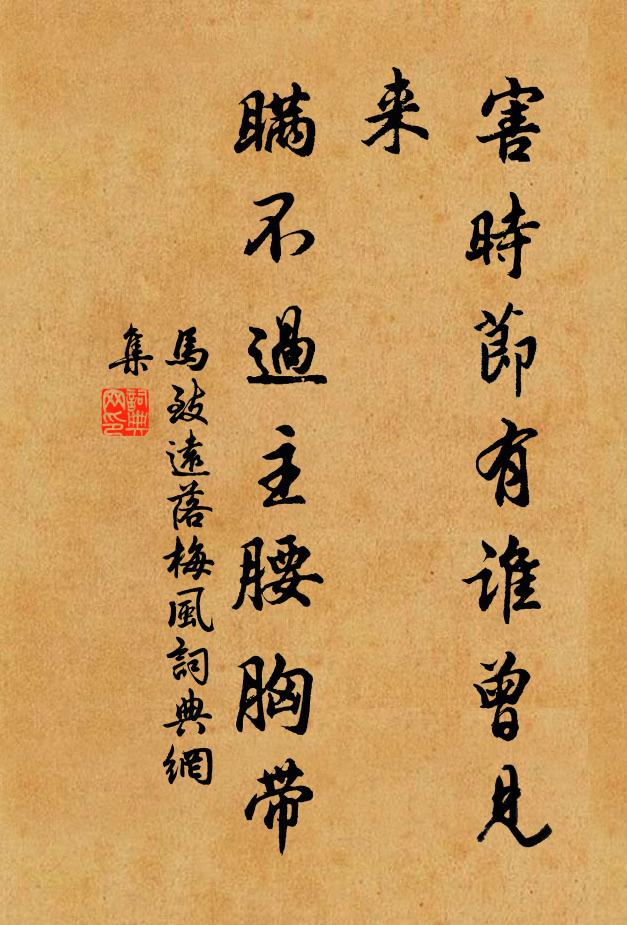 害時節有誰曾見
来
瞞不過主腰胸帶
馬致遠落梅風詞典網
集
詞典
网印